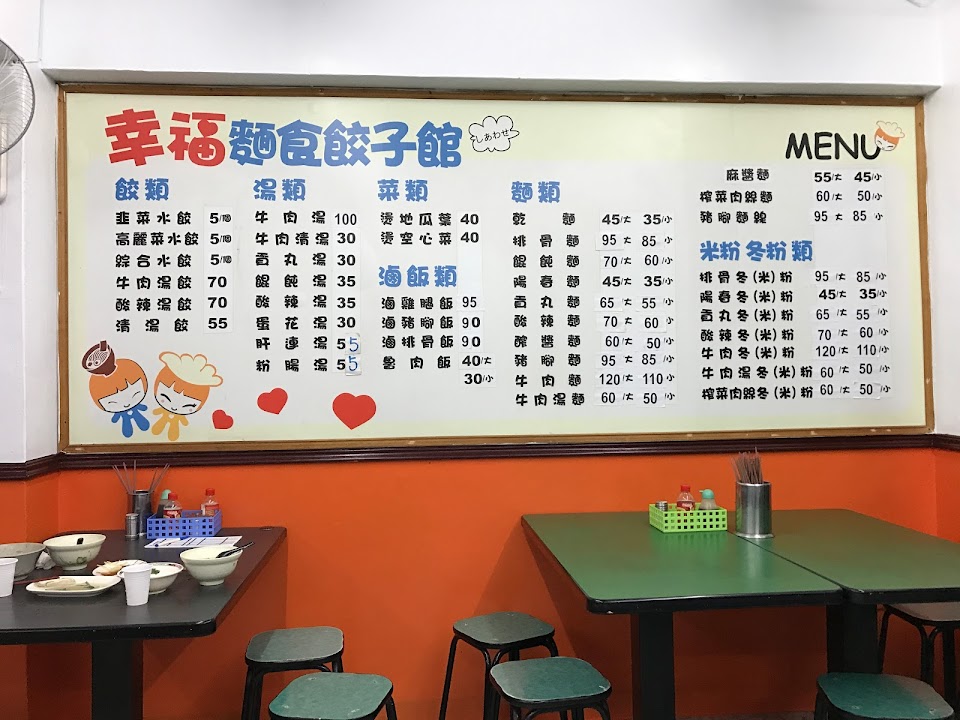 幸福麵食餃子館
しあわせ
MENU
餃類
韮菜水餃 5/個
高麗菜水餃 5/個
綜合水餃 5/個
牛肉湯餃 70
酸辣湯餃 70
清湯餃 55
湯類
牛肉湯 100
牛肉清湯 30
貢丸湯 30
餛飩湯 35
酸辣湯 35
蛋花湯 30
肝連湯 55
粉腸湯 55
菜類
燙地瓜葉 40
燙空心菜 40
滷飯類
滷雞腿飯 95
滷豬腳飯 90
滷排骨飯 90
魯肉飯 40/大
30/小
麵類
乾麵 45/大 35/小
排骨麵 95大 85小
餛飩麵 70/大 60/小
陽春麵 45/大 35/小
貢丸麵 65/大 55/小
酸辣麵 70/大 60小
醡醬麵 60/大 50/小
豬腳麵 95/大 85/小
牛肉麵 120/大 110/小
牛肉湯麵 60/大 50/小
麻醬麵 55/大 45/小
榨菜肉絲麵 60/大 50/小
豬腳麵線 95/大 85小
米粉冬粉類
排骨冬(米)粉 95/大 85/小
陽春冬(米)粉 45/大 35/小
貢丸冬(米)粉 65/大 55/小
酸辣冬(米)粉 70/大 60/小
牛肉冬(米)粉 120/大 110/小
牛肉湯冬(米)粉 60/大 50/小
榨菜肉絲冬(米)粉 60/大 50/小